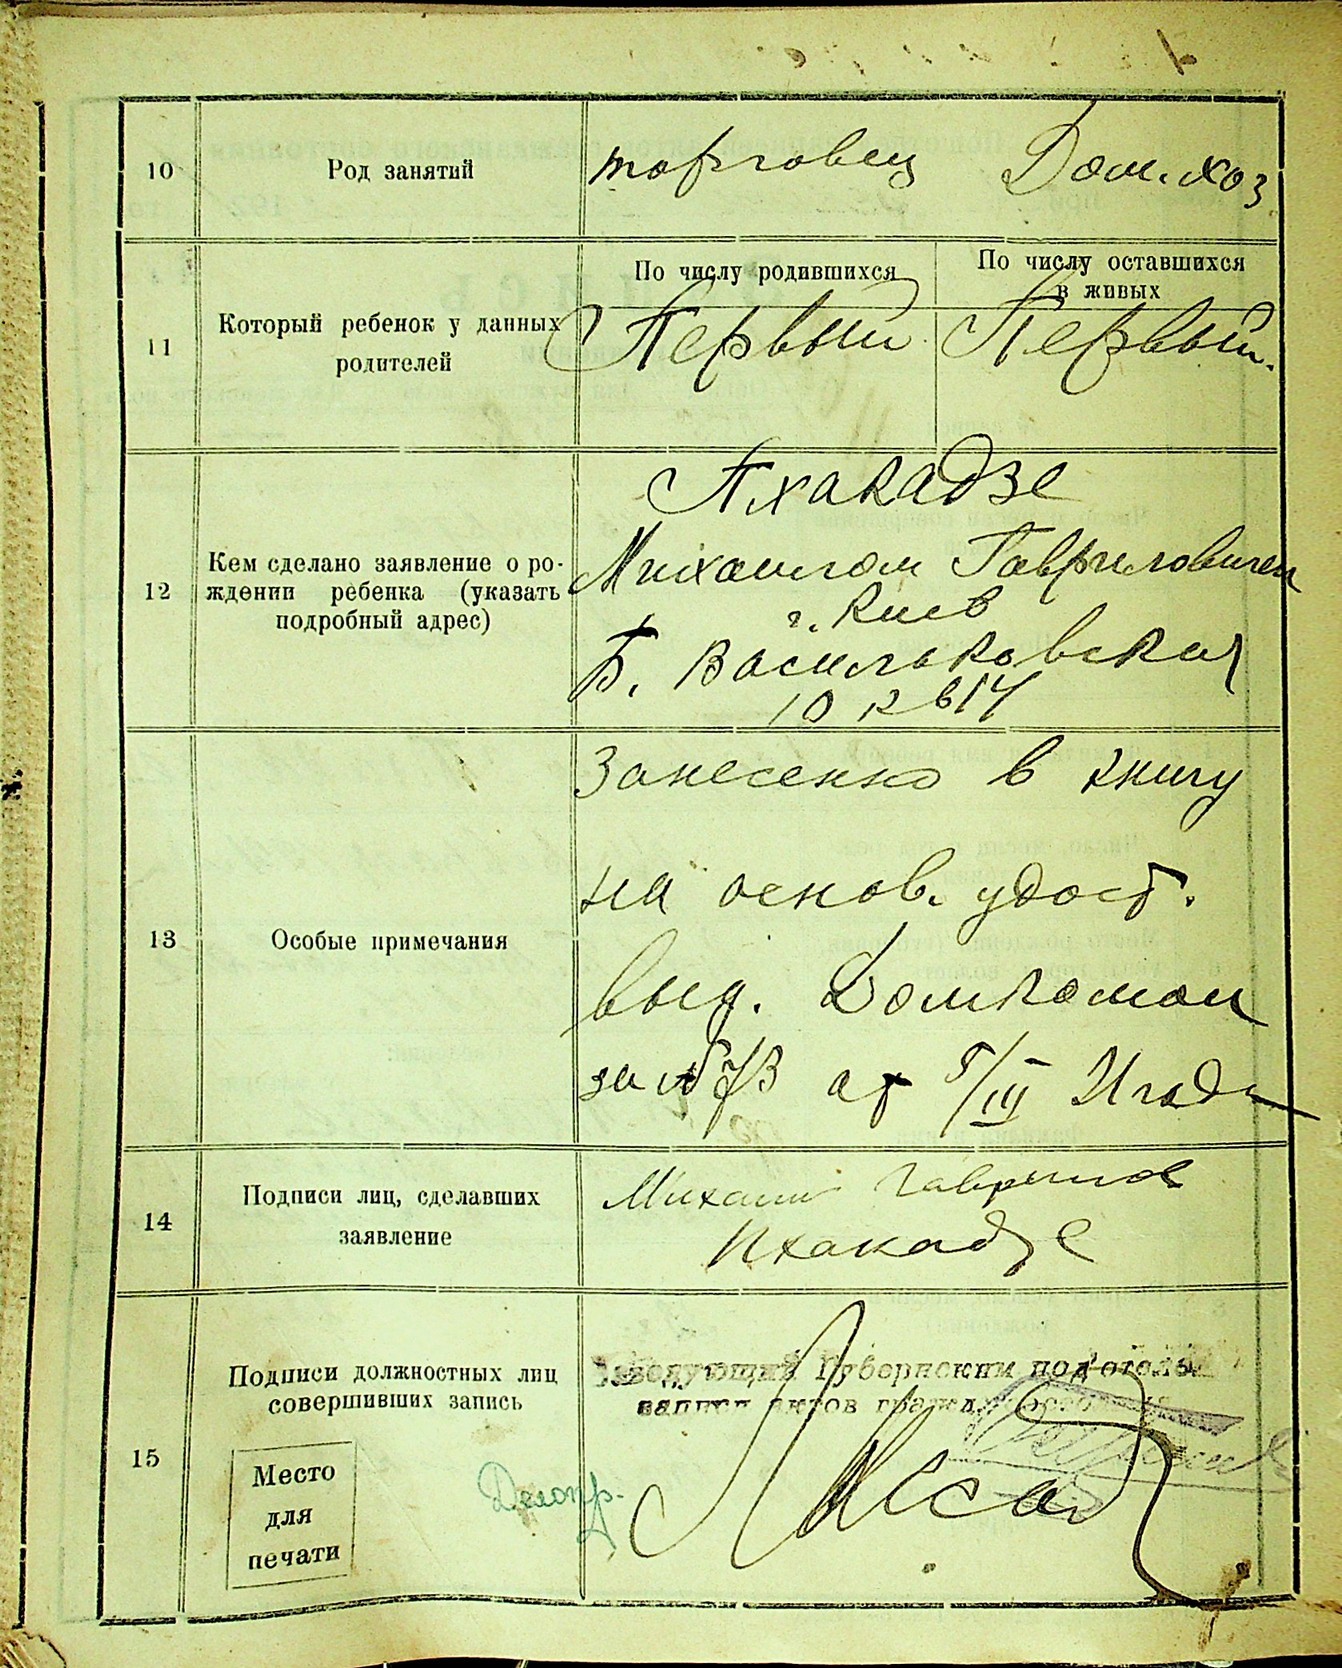 10
Род занятий
торговец Дом. хоз
11
Который ребенок у данных
родителей
По числу родившихся
Первый
По числу оставшихся
в живых
Первый.
12
Кем сделано заявление о ро-
ждении ребенка (указать
подробный адрес)
Пхакадзе
Михаилом Гавриловичем
г. Киев
Б. Васильковская
10 к в 14
13
Особые примечания
Занесенно в книгу
на основ. удост.
выд. Домкомом
за № от 5/III
14
Подписи лиц, сделавших
заявление
Михаил Гаврилов
Пхакадзе
15
Подписи должностных лиц
совершивших запись
Место
для
печати
Заведующий Губернским под'отделом
записи актов граждан. сост.
Делопр.